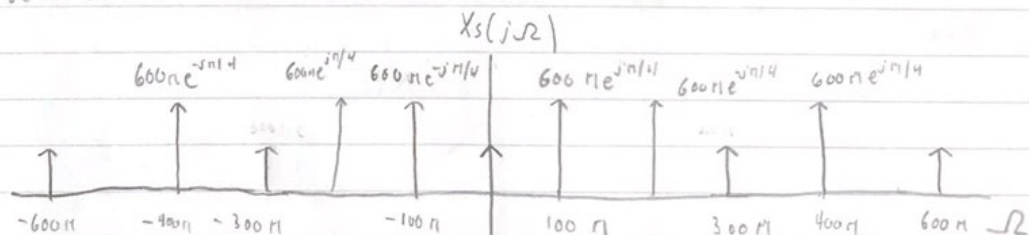 Xs(jΩ)
600πe^-jπ/4 600πe^jπ/4 600πe^-jπ/4 600πe^jπ/4 600πe^-jπ/4 600πe^jπ/4
-600π -400π -300π -100π 100π 300π 400π 600π Ω